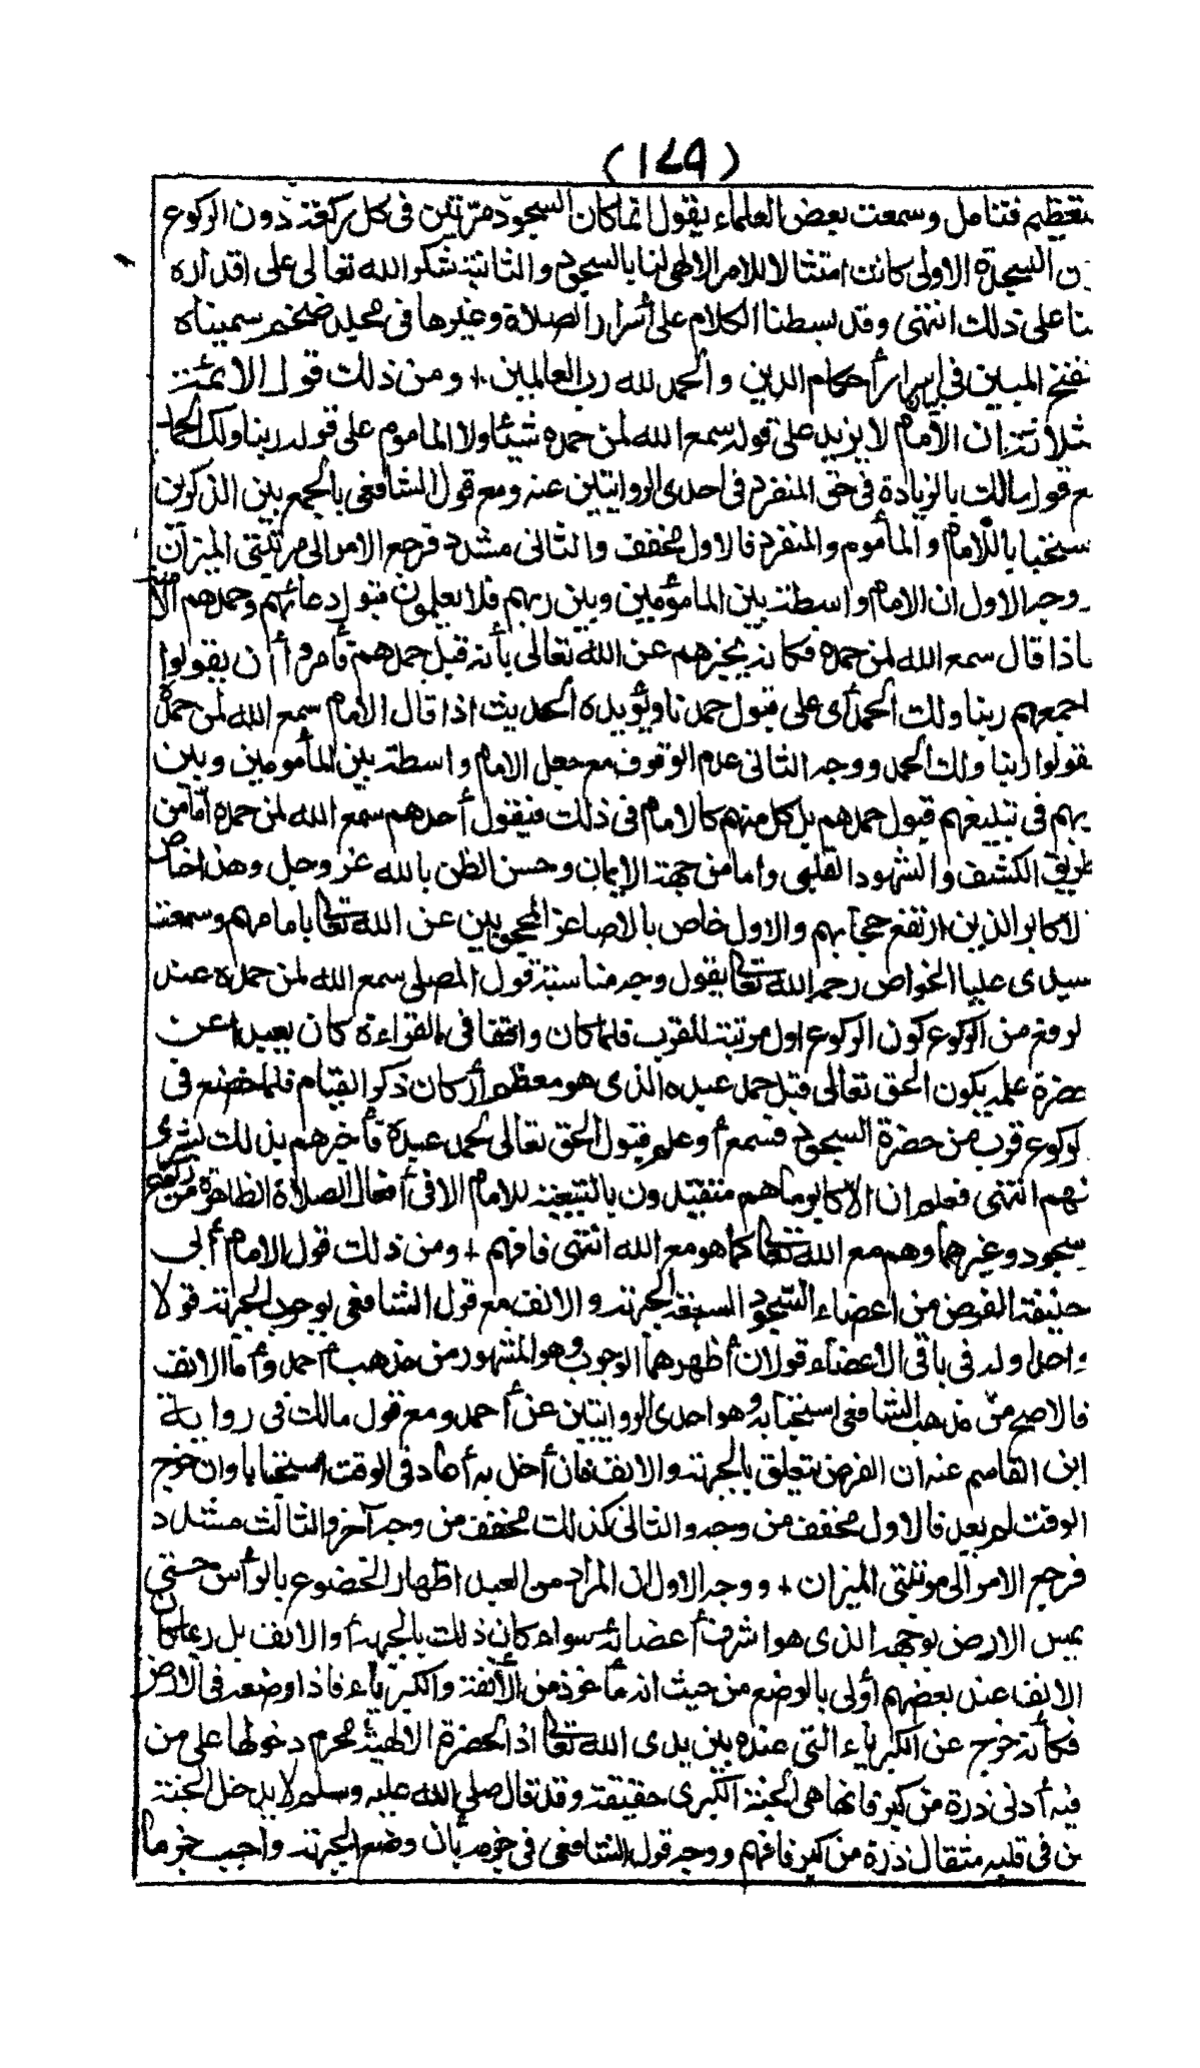 (١٧٩)
تعظيم فتامل وسمعت بعض العلماء يقول انما كان السجود مرتين فى كل ركعة دون الركوع
ن السجدة الاولى كانت امتثالا للامر الالهى لنا بالسجود والثانية شكر الله تعالى على اقداره
نا على ذلك انتهى وقد بسطنا الكلام على أسرار الصلاة وغيرها فى مجلد ضخم سميناه
لفتح المبين فى اسرار أحكام الدين والحمد لله رب العالمين + ومن ذلك قول الائمة
ثلاثة ان الامام لا يزيد على قوله سمع الله لمن حمده شيئا ولا الماموم على قوله ربنا ولك الحمد
مع قول مالك بالزيادة فى حق المنفرد فى احدى الروايتين عنه ومع قول الشافعى بالجمع بين الذكرين
ستحبابا للامام والمأموم والمنفرد فالاول مخفف والثانى مشدد فرجع الامر الى مرتبتى الميزان
ووجه الاول ان الامام واسطة بين المامومين وبين ربهم فلا يعلمون قبول دعائهم وحمدهم الا منه
فاذا قال سمع الله لمن حمده فكانه يخبرهم عن الله تعالى بأنه قبل حمدهم فأمروا أن يقولوا
اجمعهم ربنا ولك الحمد أى على قبول حمدنا ويؤيده الحديث اذا قال الامام سمع الله لمن حمده
فقولوا ربنا ولك الحمد ووجه الثانى عدم الوقوف مع جعل الامام واسطة بين المأمومين وبين
ربهم فى تبليغهم قبول حمدهم بل كل منهم كالامام فى ذلك فيقول أحدهم سمع الله لمن حمده اما من
طريق الكشف والشهود القلبى واما من جهة الايمان وحسن الظن بالله عز وجل وهذا خاص
لاكابر الذين ارتفع حجابهم والاول خاص بالاصاغر المحجوبين عن الله تعالى بامامهم وسمعت
سيدى عليا الخواص رحمه الله تعالى يقول وجه مناسبة قول المصلى سمع الله لمن حمده عند
لرفع من الركوع كون الركوع اول مرتبة للقرب فلما كان واقفا فى القراءة كان بعيدا عن
حضرة علمه بكون الحق تعالى قبل حمد عبده الذى هو معظم أركان ذكر القيام فلما خضع فى
لركوع قرب من حضرة السجود فسمع أو علم قبول الحق تعالى لحمد عبده فأخبرهم بذلك
نهم انتهى فعلم ان الاكابر ما هم متقيدون بالتبعية للامام الا فى أفعال الصلاة الظاهرة من ركوع
سجود وغيرهما وهم مع الله تعالى كما هو مع الله انتهى فافهم + ومن ذلك قول الامام أبى
حنيفة الفرض من اعضاء السجود السبعة الجبهة والانف مع قول الشافعى بوجوب الجبهة قولا
واحدا وله فى باقى الاعضاء قولان أظهرهما الوجوب وهو المشهور من مذهب أحمد وأما الانف
فالاصح من مذهب الشافعى استحبابه وهو احدى الروايتين عن أحمد ومع قول مالك فى رواية
ابن القاسم عنه ان الفرض يتعلق بالجبهة والانف فان أخل به أعاد فى الوقت استحبابا وان خرج
الوقت لم يعد فالاول مخفف من وجه والثانى كذلك مخفف من وجه آخر والثالث مشدد
فرجع الامر الى مرتبتى الميزان + ووجه الاول ان المراد من العبد اظهار الخضوع بالرأس حتى
يمس الارض بوجهه الذى هو اشرف أعضائه سواء كان ذلك بالجبهة أو الانف بل ربما كان
الانف عند بعضهم أولى بالوضع من حيث انه مأخوذ من الأنفة والكبرياء فاذا وضعه فى الارض
فكأنه خرج عن الكبرياء التى عنده بين يدى الله تعالى اذ الحضرة الالهية محرم دخولها على من
فيه أدنى ذرة من كبر فانها هى الجنة الكبرى حقيقة وقد قال صلى الله عليه وسلم لا يدخل الجنة
من فى قلبه مثقال ذرة من كبر فافهم ووجه قول الشافعى فى جزمه بأن وضع الجبهة واجب جزما